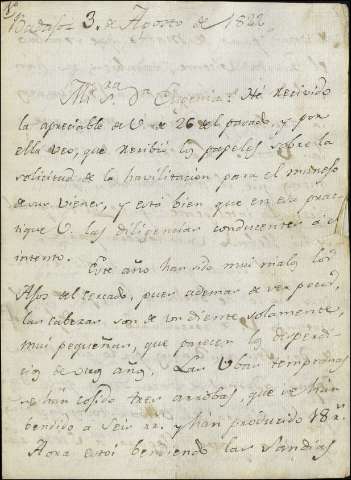 1ª
Badajoz 3. de Agosto de 1822
Mi Sra Dª Eugenia: Hé recivido
la apreciable de V. de 26 del pasado, y por
ella veo, que recibió los papeles sobre la
solicitud de la havilitacion para el manejo
de sus vienes, y está bien que en esa prac-
tique V. las diligencias conducentes á el
intento.
Este año han sido mui malos los
Ajos del cercado, pues ademas de ser pocos,
las cabezas son de un diente solamente,
mui pequeñas, que parecen los desperdi-
cios de otros años. Las Ubas tempranas
se han cojido tres arrobas, que se han
bendido a seis rr. y han producido 18 rr.
Aora estoi bendiendo las Sandias